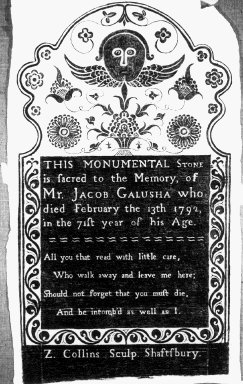 THIS MONUMENTAL STONE
is sacred to the Memory, of
Mr. JACOB GALUSHA who
died February the 13th 1792,
in the 71ſt year of his Age.
All you that read with little care,
Who walk away and leave me here;
Should not forget that you muſt die,
And be intomb'd as well as I.
Z. Collins Sculp. Shaftſbury.